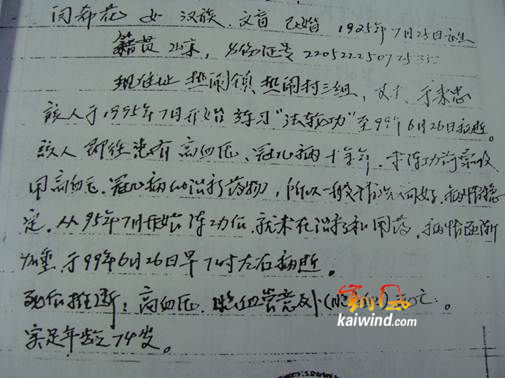 闫希花 女 汉族、文盲 已婚 1925年7月25日出生
籍贯 山东, 身份证号 220522250725
现住址 热闹镇 热闹村三组,
该人于1995年7月开始练习"法轮功"至99年6月26日病逝。
该人 患有 高血压、冠心病十年 , 未练功前常服
用高血压、冠心病的治疗药物, 所以一般 病情稳
定。从95年7月开始练功后,就未在治疗和用药,病情逐渐
加重 于99年6月26日早7时左右病逝。
死后推断:高血压、脑血管意外( 死亡。
实足年龄74岁。
kaiwind.com